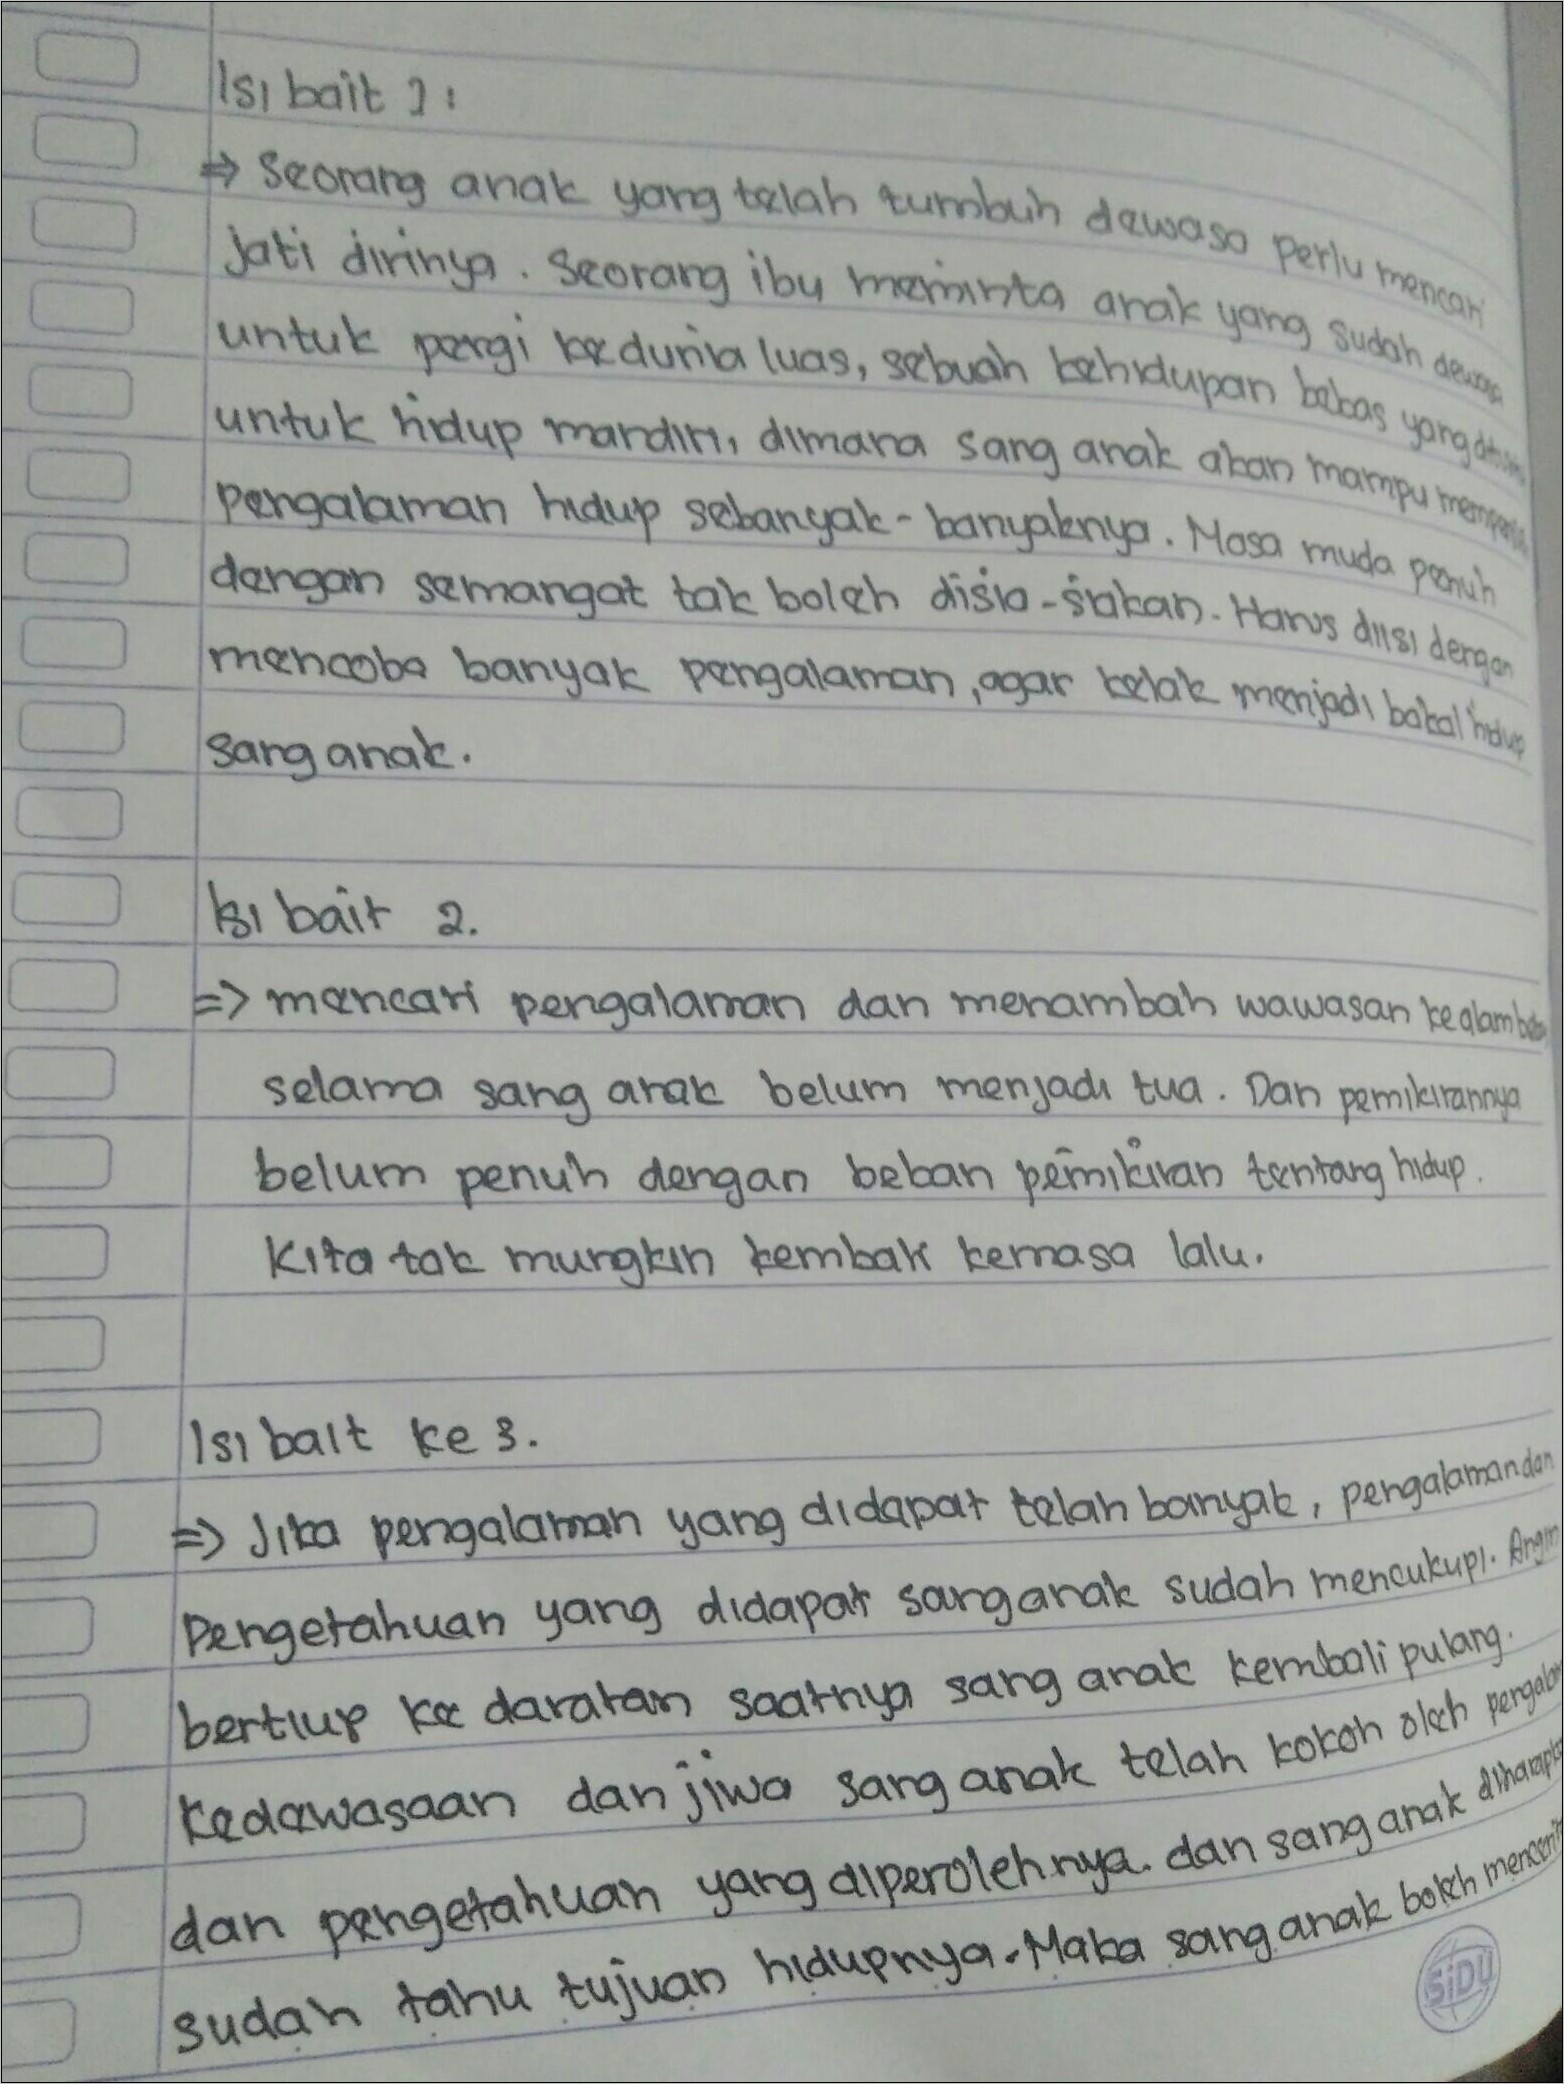 Isi bait 1:
=> Seorang anak yang telah tumbuh dewasa perlu mencari
Jati dirinya. Seorang ibu meminta anak yang sudah dewasa
untuk pergi kedunia luas, sebuah kehidupan bebas yang
untuk hidup mandiri, dimana sang anak akan mampu
pengalaman hidup sebanyak-banyaknya. Masa muda penuh
dengan semangat tak boleh disia-siakan. Harus diisi dengan
mencoba banyak pengalaman, agar kelak menjadi bakal hidup
sang anak.
Isi bait 2.
=> mencari pengalaman dan menambah wawasan kealam
selama sang anak belum menjadi tua. Dan pemikirannya
belum penuh dengan beban pemikiran tentang hidup.
Kita tak mungkin kembali kemasa lalu.
Isi bait ke 3.
=> Jika pengalaman yang didapat telah banyak, pengalaman dan
Pengetahuan yang didapat sang anak sudah mencukupi. Angin
bertiup ke daratan saatnya sang anak kembali pulang.
Kedewasaan dan jiwa sang anak telah kokoh oleh
dan pengetahuan yang diperolehnya. dan sang anak
sudah tahu tujuan hidupnya. Maka sang anak boleh
SiDU